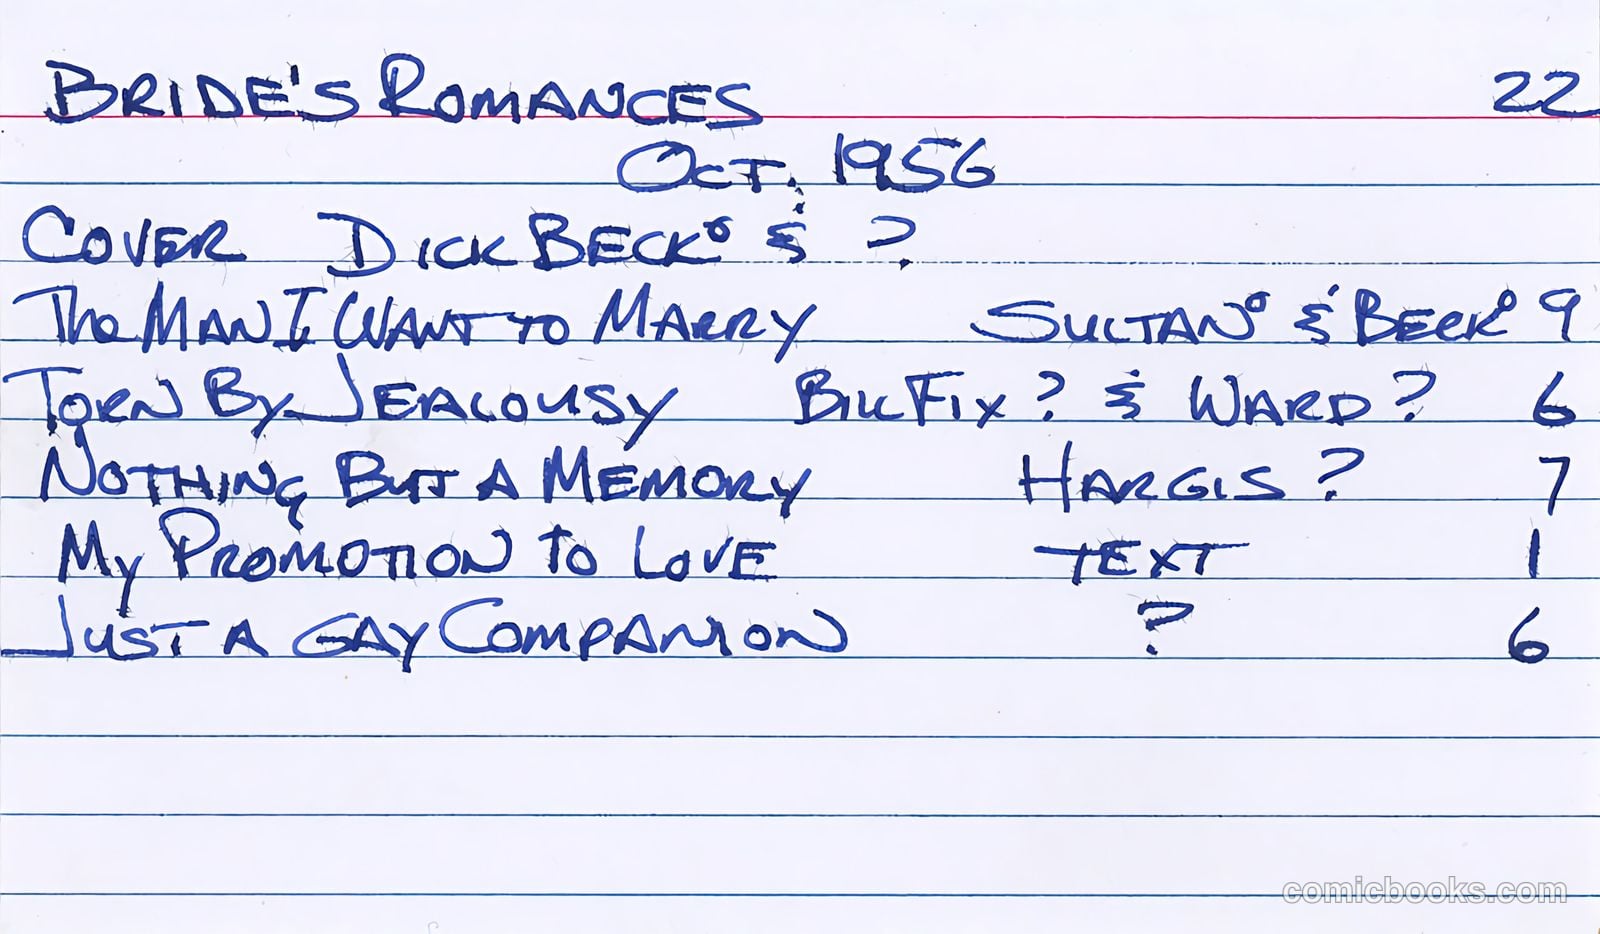 BRIDE'S ROMANCES 22
OCT. 1956
COVER DICK BECK° & ?
The MAN I WANT TO MARRY SULTAN° & BECK° 9
TORN BY JEALOUSY BILL FIX ? & WARD ? 6
NOTHING BUT A MEMORY HARGIS ? 7
MY PROMOTION TO LOVE TEXT 1
JUST A GAY COMPANION ? 6
comicbooks.com